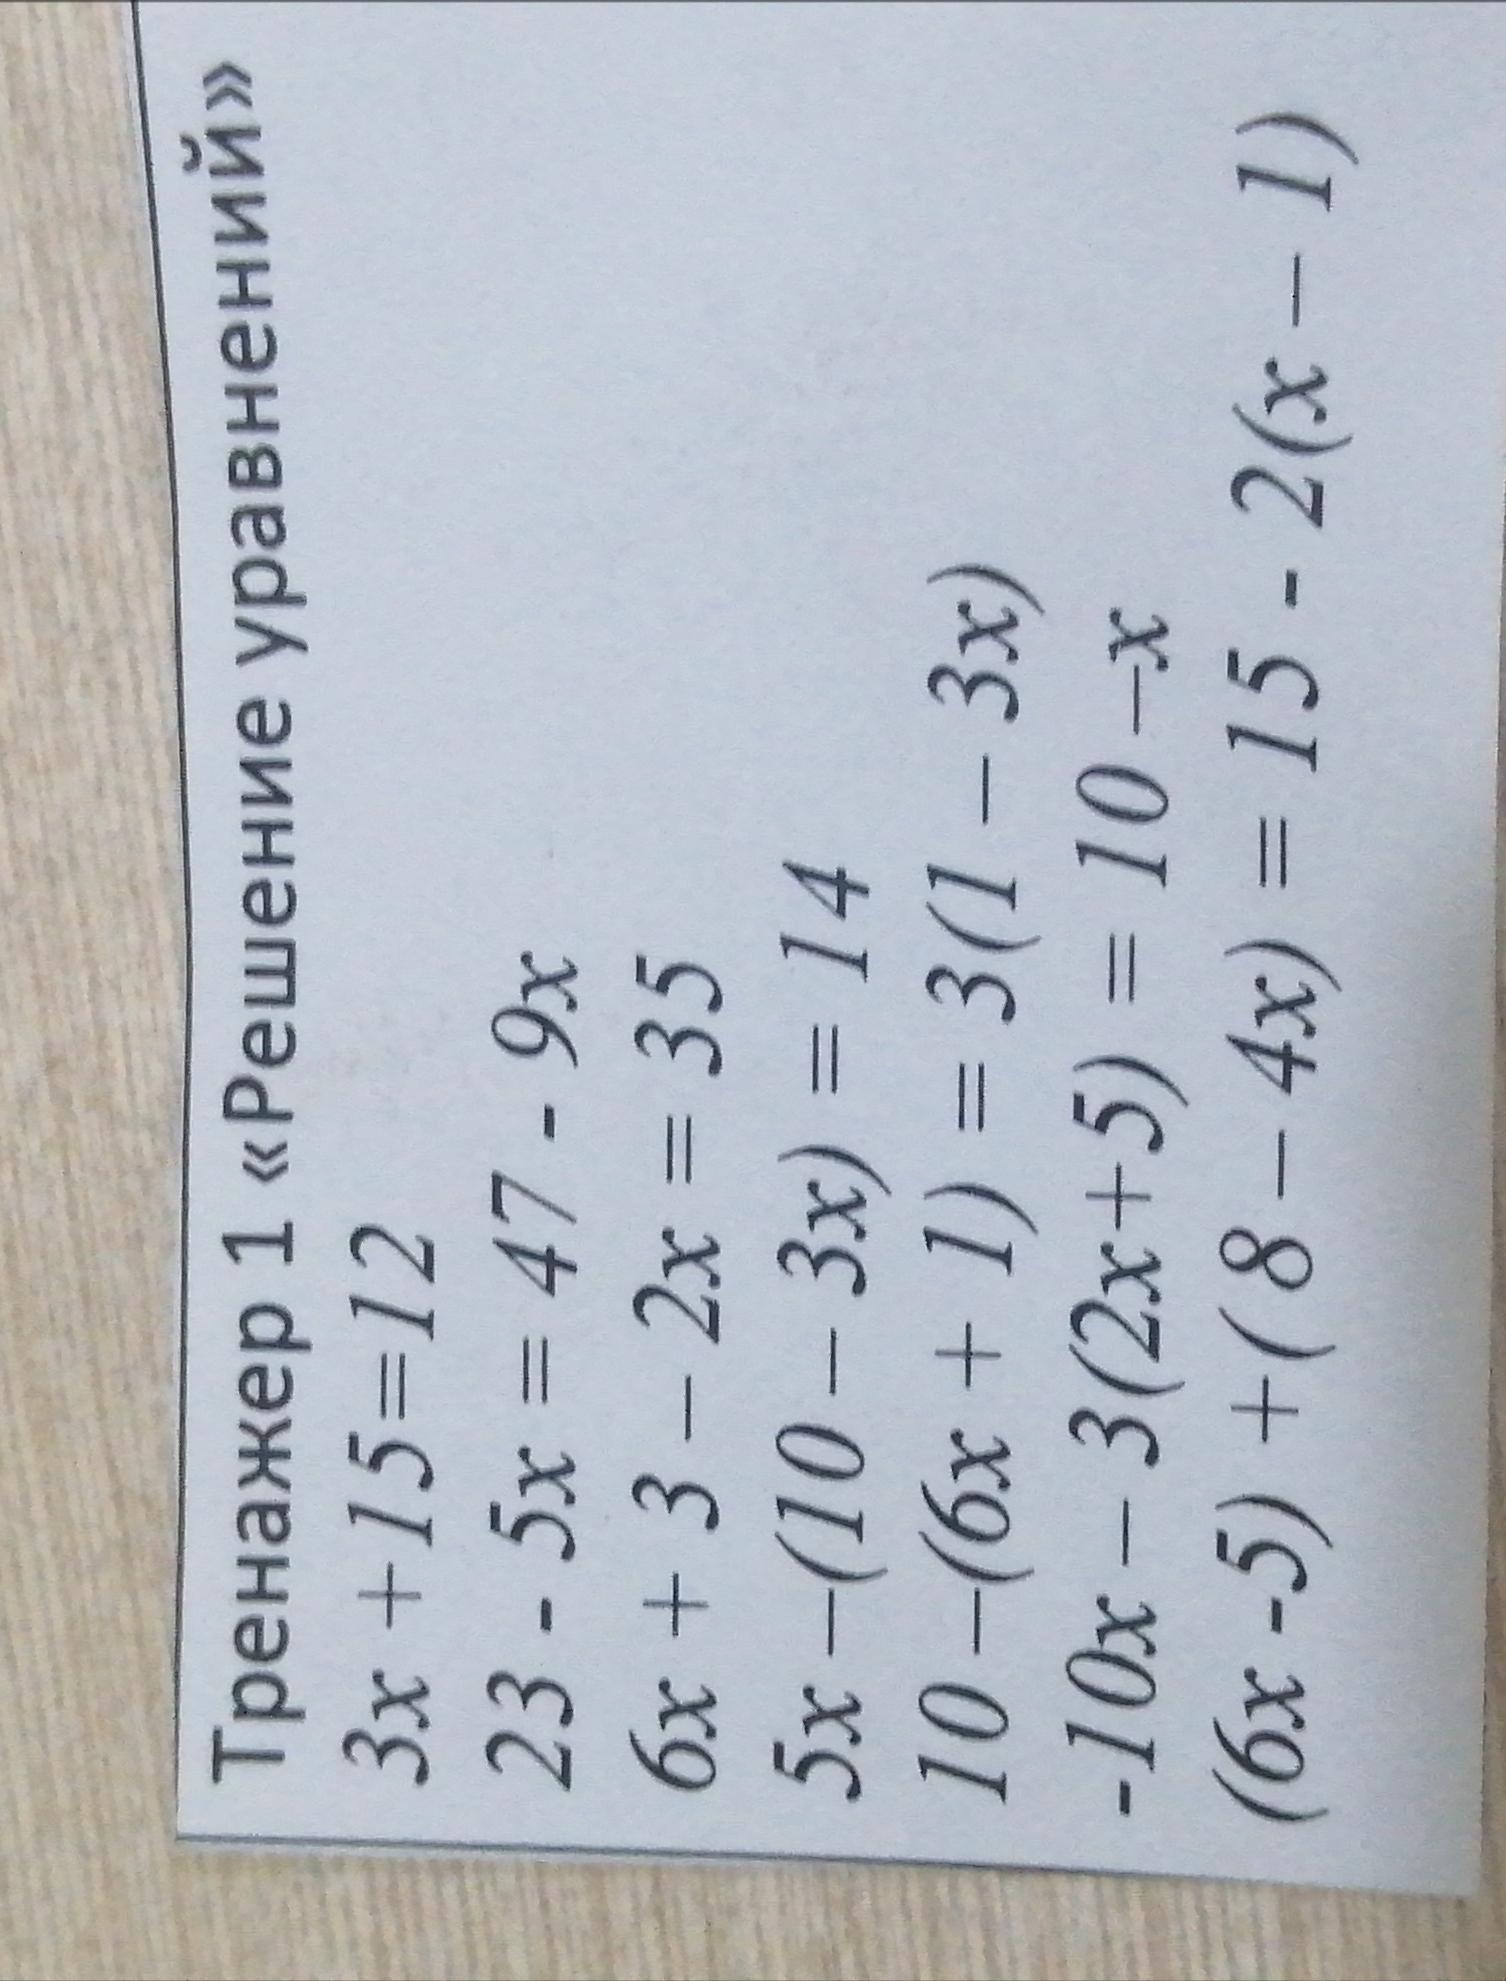 Тренажер 1 «Решение уравнений»
3x +15=12
23 - 5x = 47 - 9x
6x + 3 – 2x = 35
5x –(10 – 3x) = 14
10 –(6x + 1) = 3(1 – 3x)
-10x – 3(2x+5) = 10 –x
(6x -5) +( 8 – 4x) = 15 - 2(x – 1)